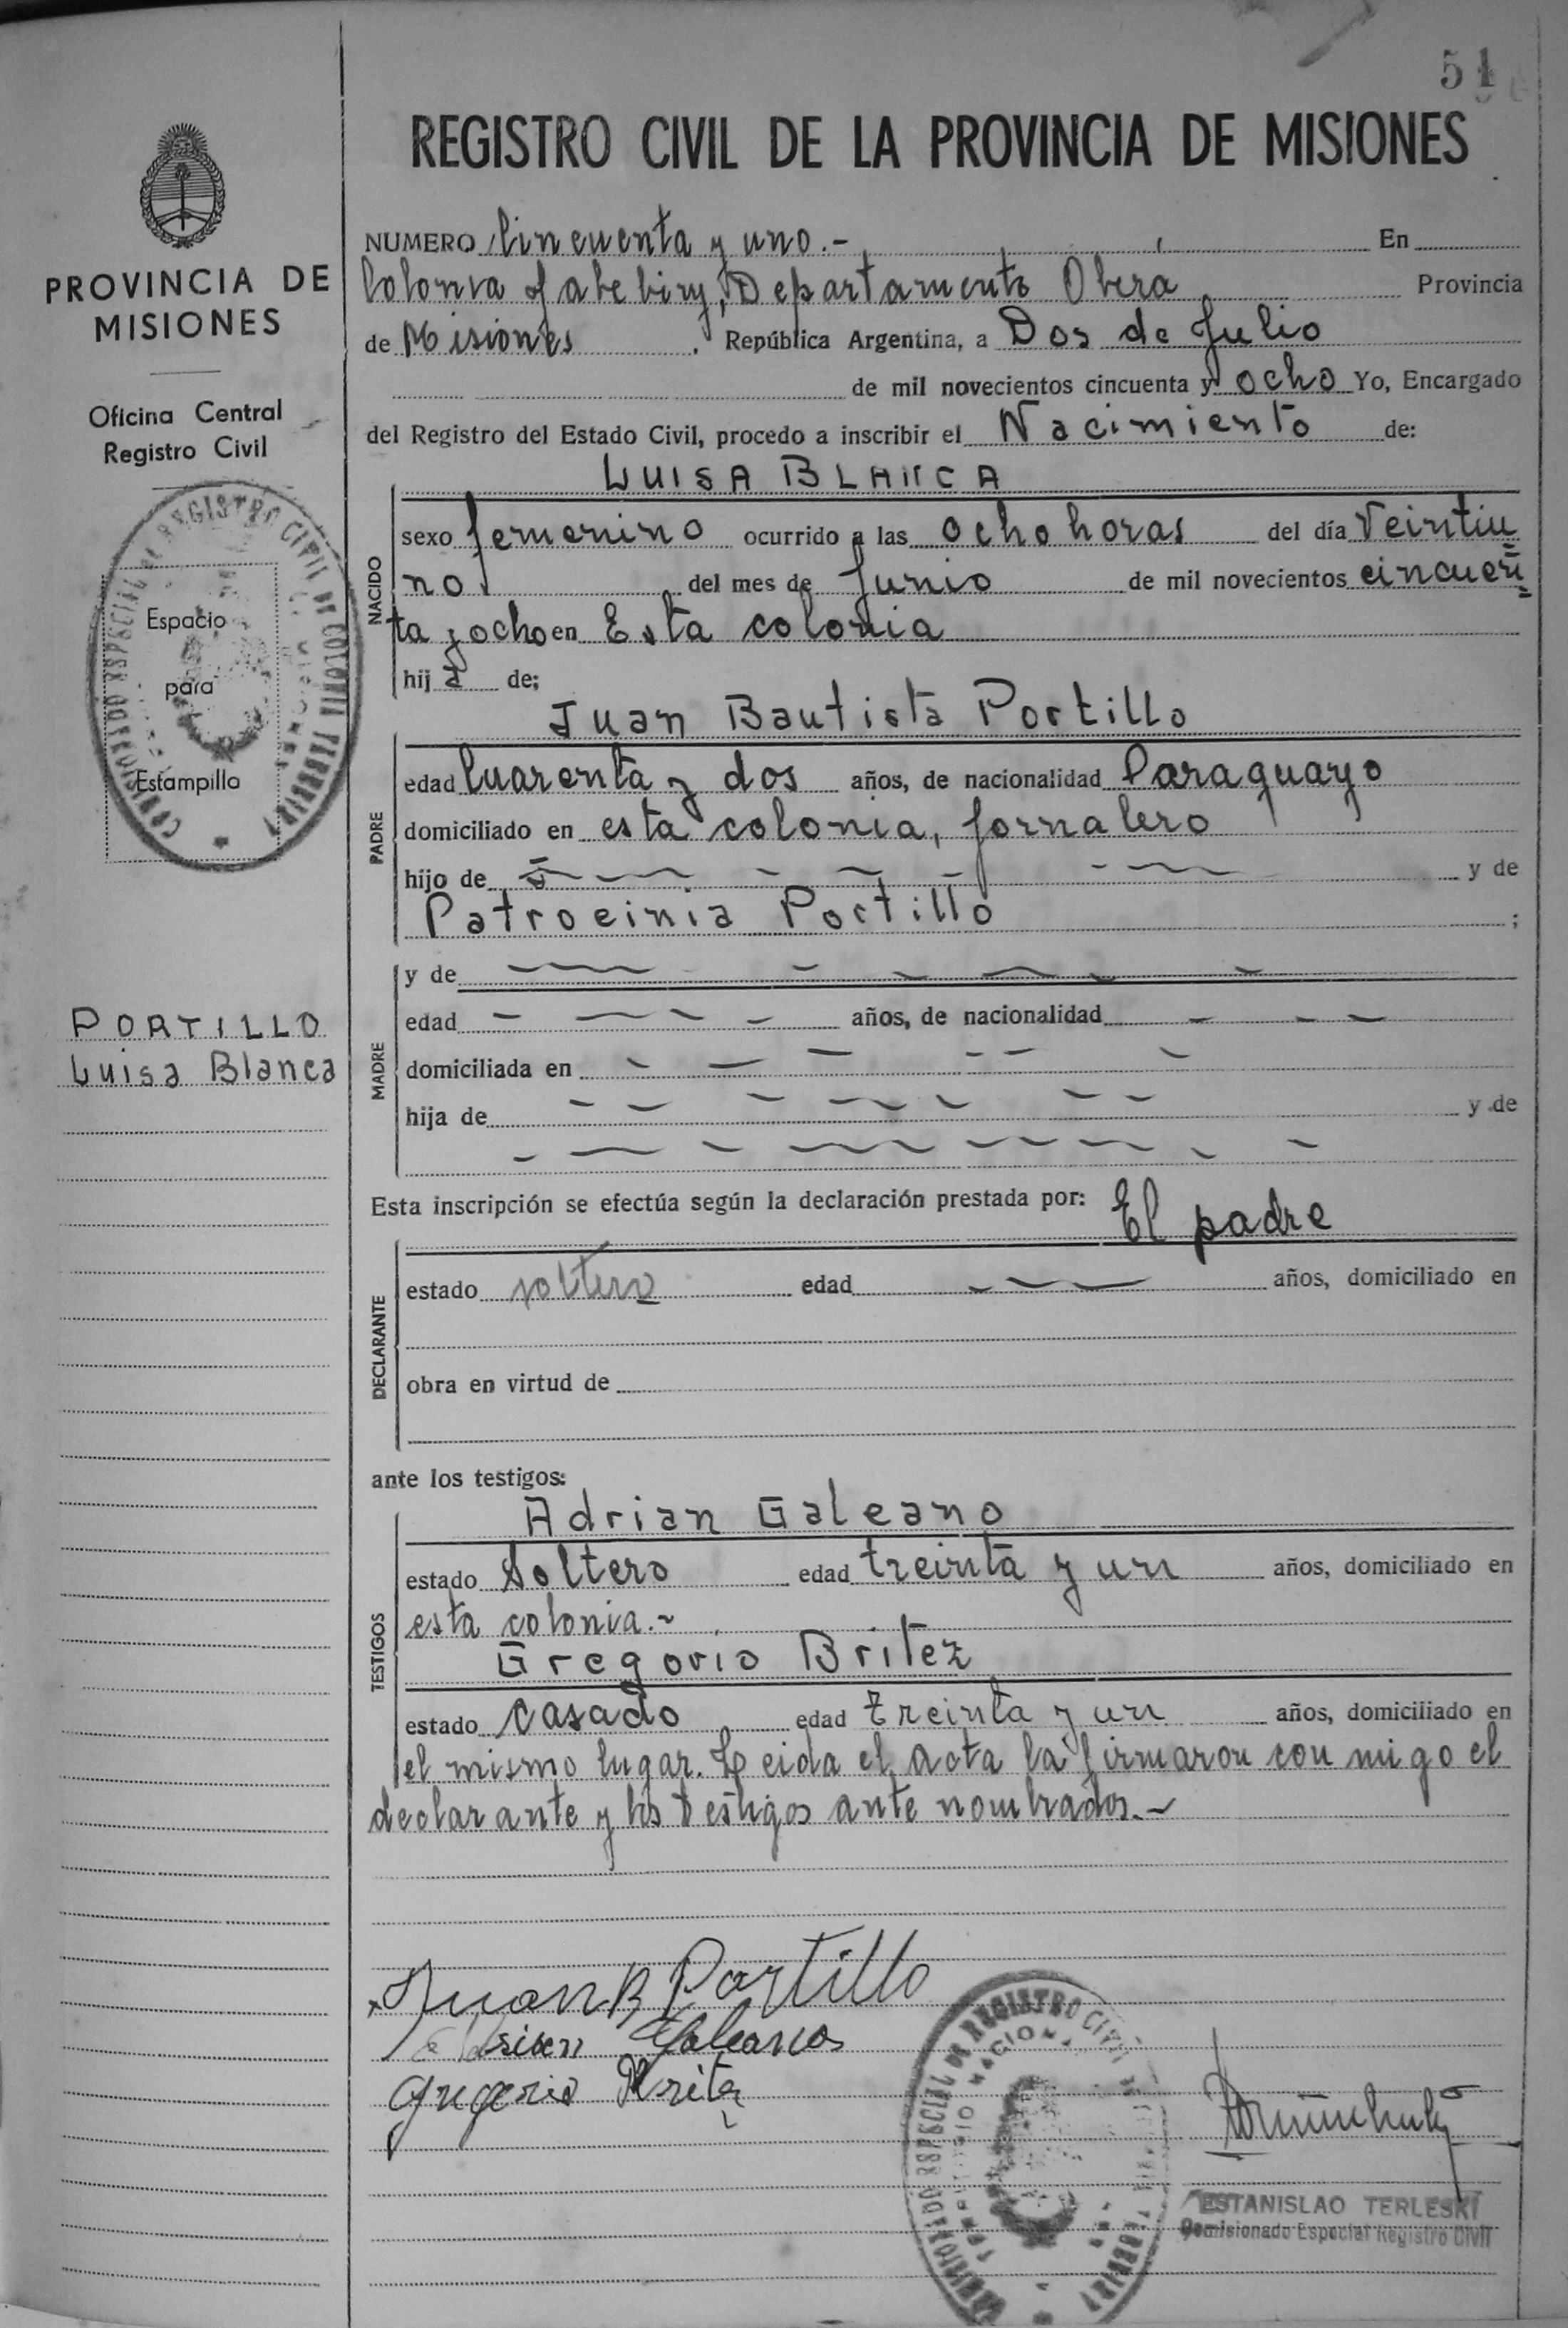 51
REGISTRO CIVIL DE LA PROVINCIA DE MISIONES
PROVINCIA DE
MISIONES
Oficina Central
Registro Civil
Espacio
para
Estampilla
PORTILLO
Luisa Blanca
NUMERO Cincuenta y uno.- En
Colonia Yabebiry, Departamento Obera Provincia
de Misiones . República Argentina, a Dos de Julio
de mil novecientos cincuenta y ocho Yo, Encargado
del Registro del Estado Civil, procedo a inscribir el Nacimiento de:
LUISA BLANCA
NACIDO
sexo femenino ocurrido a las ocho horas del día Veintiu
no del mes de Junio de mil novecientos cincuen
ta y ocho en Esta colonia
hij a de;
Juan Bautista Portillo
PADRE
edad Cuarenta y dos años, de nacionalidad Paraguayo
domiciliado en esta colonia, jornalero
hijo de y de
Patrocinia Portillo ;
MADRE
y de
edad años, de nacionalidad
domiciliada en
hija de y de
Esta inscripción se efectúa según la declaración prestada por: El padre
DECLARANTE
estado soltero edad años, domiciliado en
obra en virtud de
ante los testigos:
TESTIGOS
Adrian Galeano
estado Soltero edad treinta y un años, domiciliado en
esta colonia.-
Gregorio Britez
estado casado edad treinta y un años, domiciliado en
el mismo lugar. Leida el acta la firmaron con migo el
declarante y los testigos ante nombrados.-
Juan B Portillo
Galeano
Gregorio
ESTANISLAO TERLESKI
Comisionado Especial Registro Civil